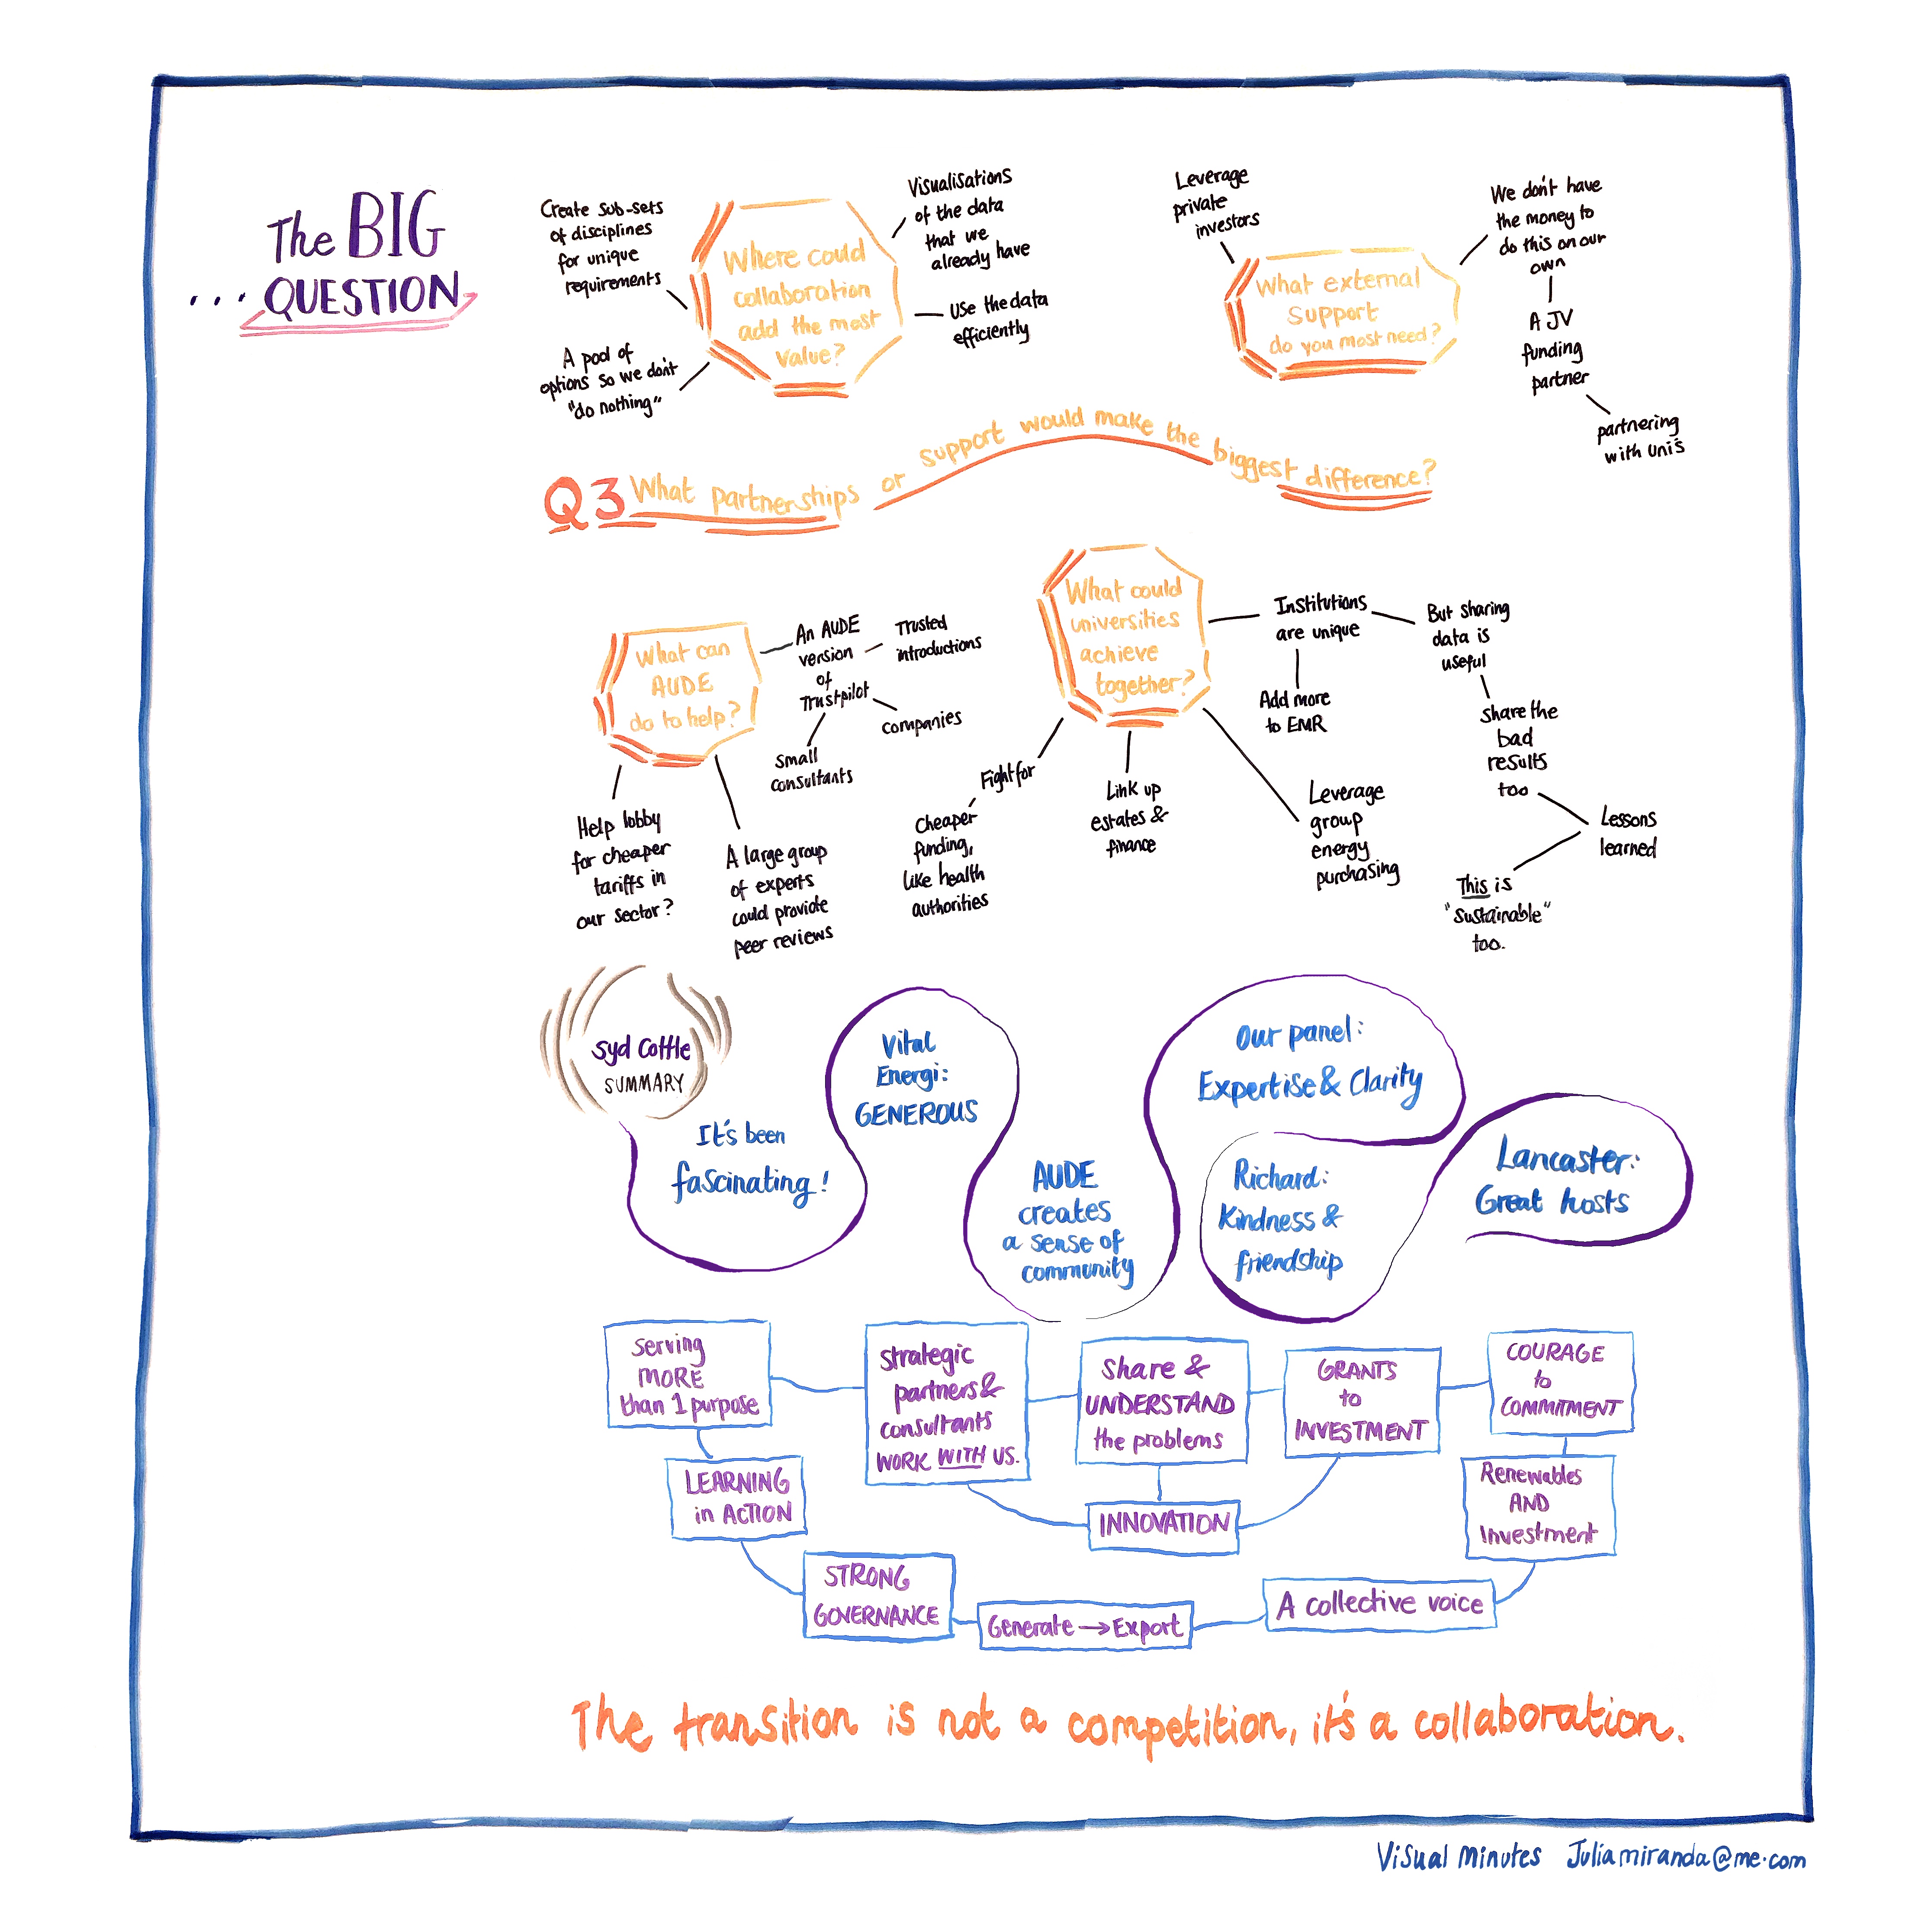 The BIG
... QUESTION
Create sub-sets
of disciplines
for unique
requirements
A pool of
options so we don't
"do nothing"
Where could
collaboration
add the most
value?
Visualisations
of the data
that we
already have
Use the data
efficiently
Leverage
private
investors
What external
support
do you most need?
We don't have
the money to
do this on our
own
A JV
funding
partner
partnering
with uni's
Q3 What partnerships or support would make the biggest difference?
What can
AUDE
do to help?
An AUDE
version
of
Trustpilot
Trusted
introductions
companies
Small
consultants
Help lobby
for cheaper
tariffs in
our sector?
A large group
of experts
could provide
peer reviews
What could
universities
achieve
together?
Institutions
are unique
Add more
to EMR
But sharing
data is
useful
Share the
bad
results
too
Lessons
learned
This is
"sustainable"
too.
Fight for
Cheaper
funding,
like health
authorities
Link up
estates &
finance
Leverage
group
energy
purchasing
Syd Cottle
SUMMARY
It's been
fascinating!
Vital
Energi:
GENEROUS
AUDE
creates
a sense of
community
Our panel:
Expertise & Clarity
Richard:
Kindness &
friendship
Lancaster:
Great hosts
Serving
MORE
than 1 purpose
Strategic
partners &
consultants
WORK WITH US.
Share &
UNDERSTAND
the problems
GRANTS
to
INVESTMENT
COURAGE
to
COMMITMENT
LEARNING
in ACTION
INNOVATION
Renewables
AND
Investment
STRONG
GOVERNANCE
Generate → Export
A collective voice
The transition is not a competition, it's a collaboration.
Visual Minutes Juliamiranda@me.com